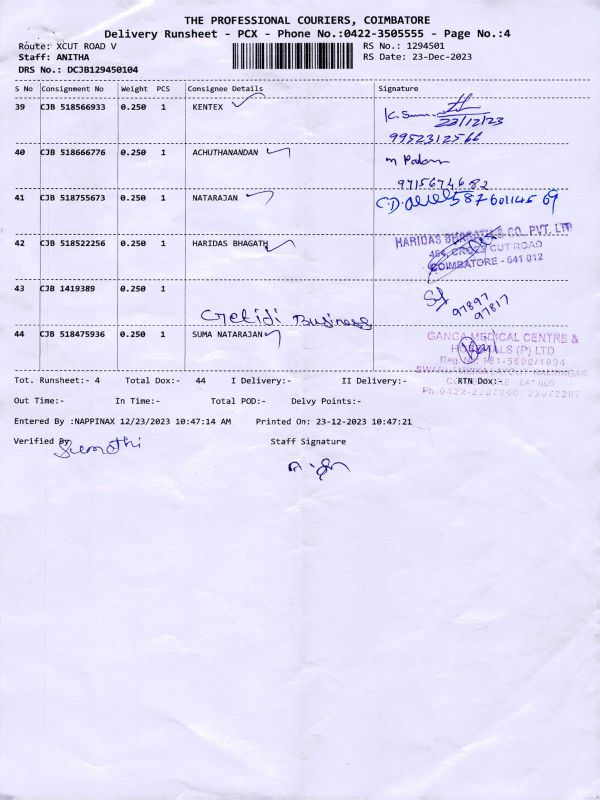 THE PROFESSIONAL COURIERS, COIMBATORE
Delivery Runsheet - PCX - Phone No.:0422-3505555 - Page No.:4
Route: XCUT ROAD V
RS No.: 1294501
Staff: ANITHA
RS Date: 23-Dec-2023
DRS No.: DCJB129450104
S No Consignment No Weight PCS Consignee Details Signature
39 CJB 518566933 0.250 1 KENTEX
22/12/23
9952312566
40 CJB 518666776 0.250 1 ACHUTHANANDAN
9715674682
41 CJB 518755673 0.250 1 NATARAJAN
42 CJB 518522256 0.250 1 HARIDAS BHAGATH
HARIDAS BHAGATH & CO. PVT. LTD
CUT ROAD
COIMBATORE - 641 012
43 CJB 1419389 0.250 1
97897
97817
Business
44 CJB 518475936 0.250 1 SUMA NATARAJAN
GANGA MEDICAL CENTRE &
HOSPITALS (P) LTD
Tot. Runsheet:- 4 Total Dox:- 44 I Delivery:- II Delivery:- RTN Dox:-
Out Time:- In Time:- Total POD:- Delvy Points:-
Entered By :NAPPINAX 12/23/2023 10:47:14 AM Printed On: 23-12-2023 10:47:21
Verified By Staff Signature
Sumathi